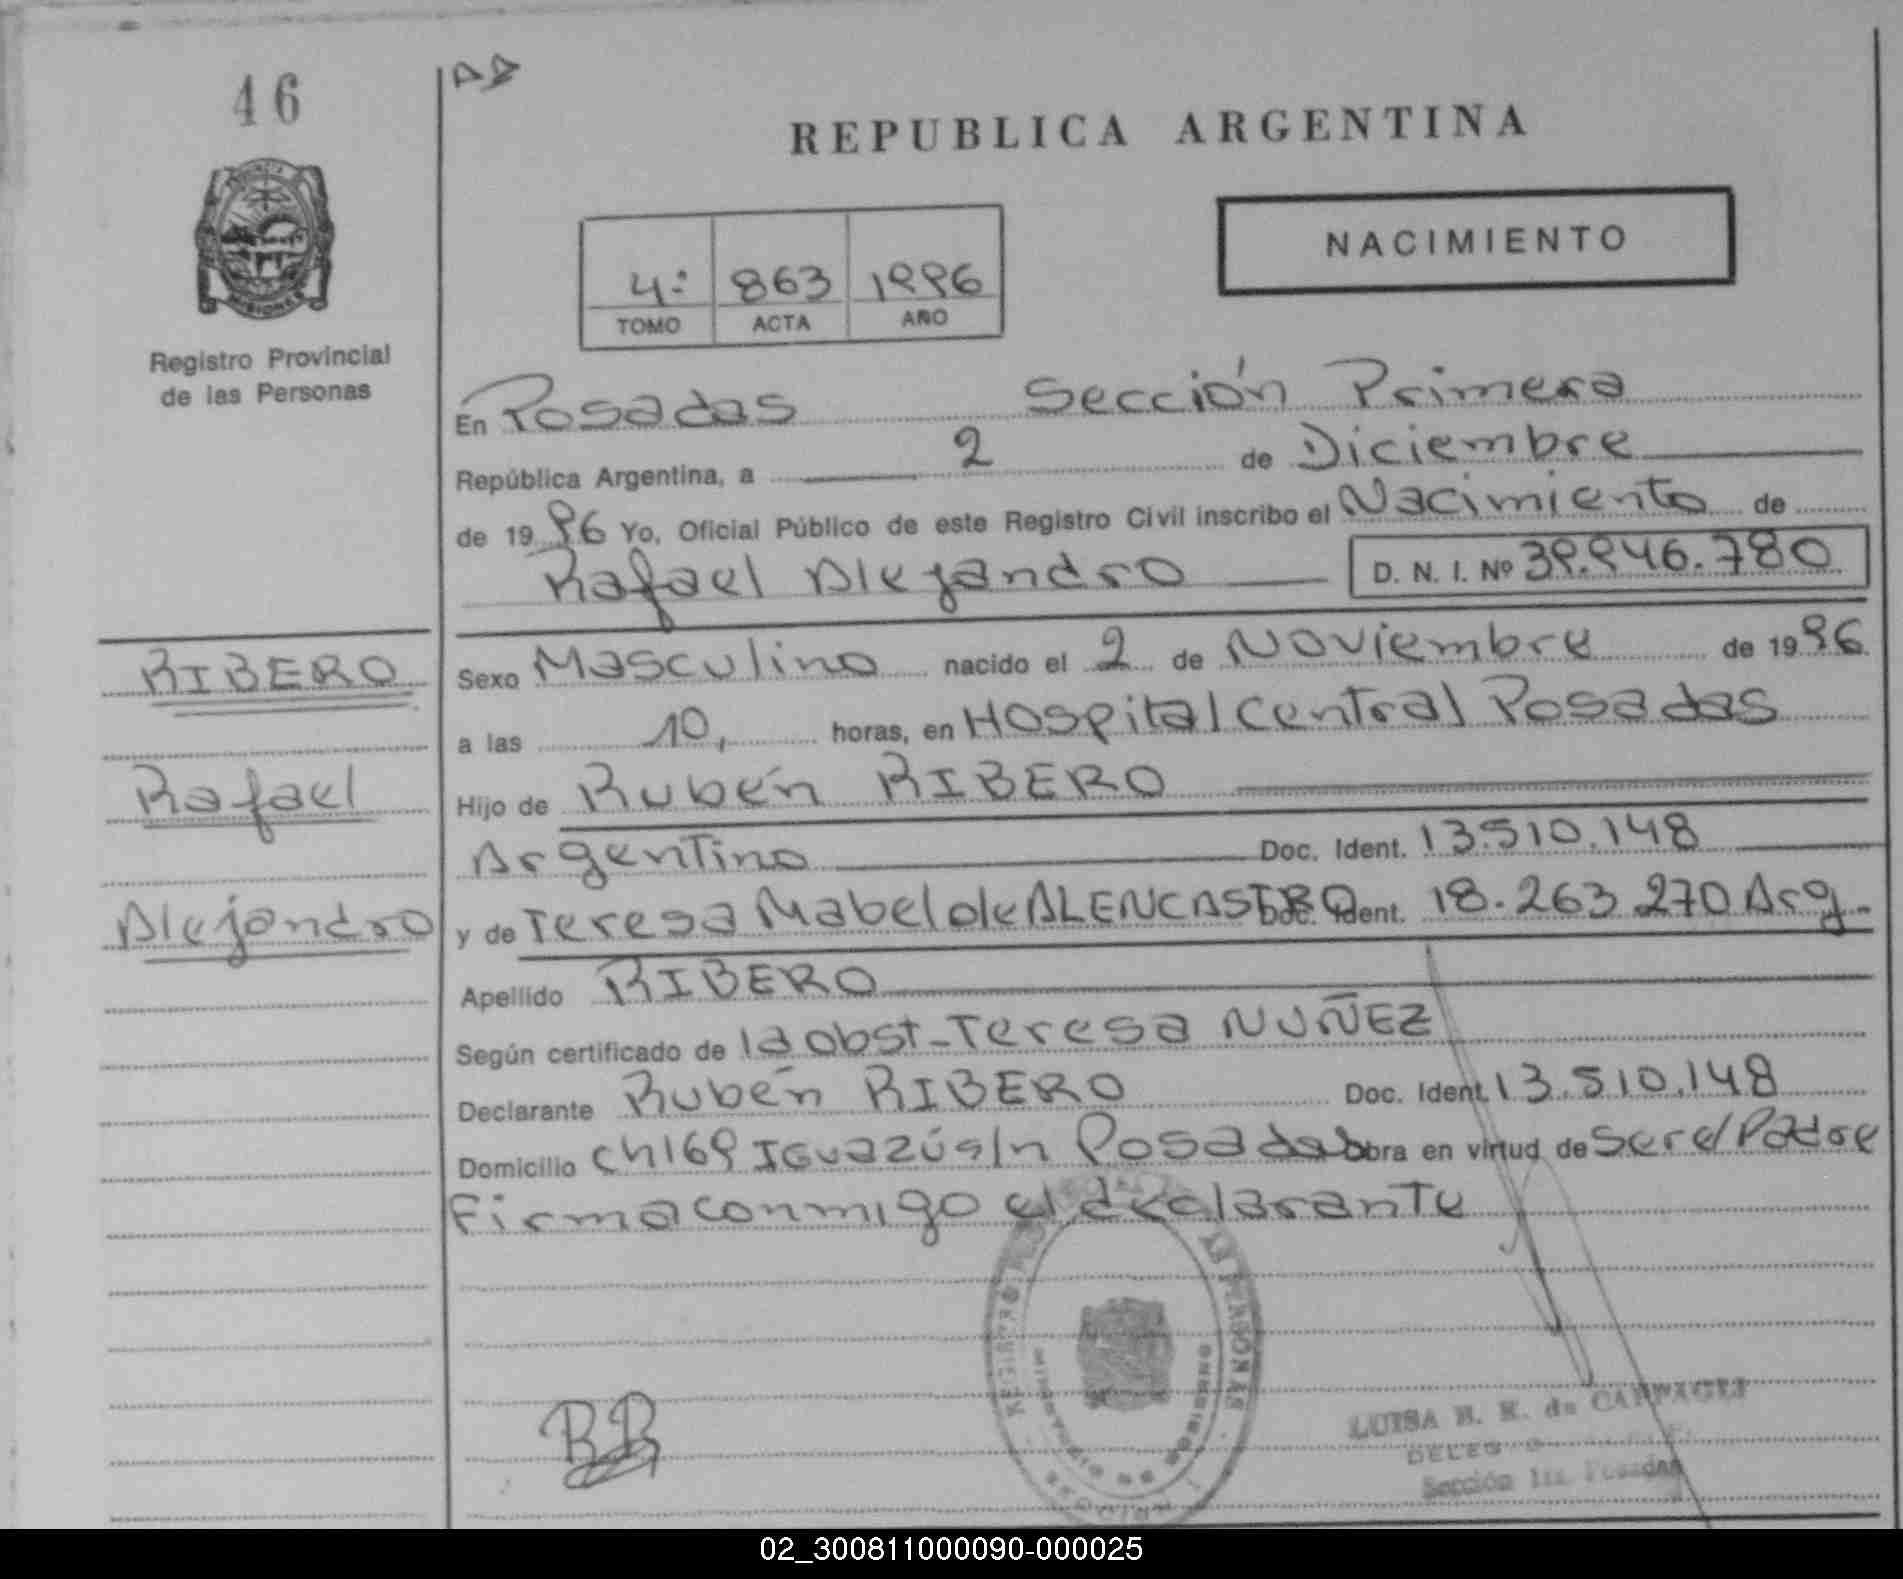 46
REPUBLICA ARGENTINA
NACIMIENTO
4º 863 1996
TOMO ACTA AÑO
Registro Provincial
de las Personas
En Posadas Sección Primera
República Argentina, a 2 de Diciembre
de 1996 Yo, Oficial Público de este Registro Civil inscribo el Nacimiento de
Rafael Alejandro D. N. I. Nº 39.946.780
RIBERO
Rafael
Alejandro
Sexo Masculino nacido el 2 de Noviembre de 1996
a las 10, horas, en Hospital Central Posadas
Hijo de Rubén RIBERO
Argentino Doc. Ident. 13.510.148
y de Teresa Mabel de ALENCASTRO Doc. Ident. 18.263.270 Arg.
Apellido RIBERO
Según certificado de la obst-Teresa NUÑEZ
Declarante Rubén RIBERO Doc. Ident. 13.510.148
Domicilio Ch169 IGUAZÚ s/n Posadas obra en virtud de ser el Padre
Firma conmigo el declarante
LUISA de
Sección 1ra. Posadas
02_300811000090-000025